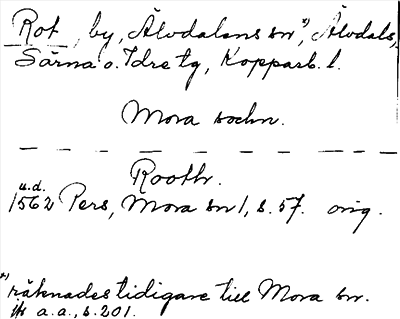 Rot, by, Älvdalens sn*), Älvdals,
Särna o. Idre tg, Kopparb. l.
Mora sochn.
Roothr.
u.d.
1562 Pers, Mora sn 1, s. 57. orig.
*) räknades tidigare till Mora sn.
jfr a.a., s. 201.